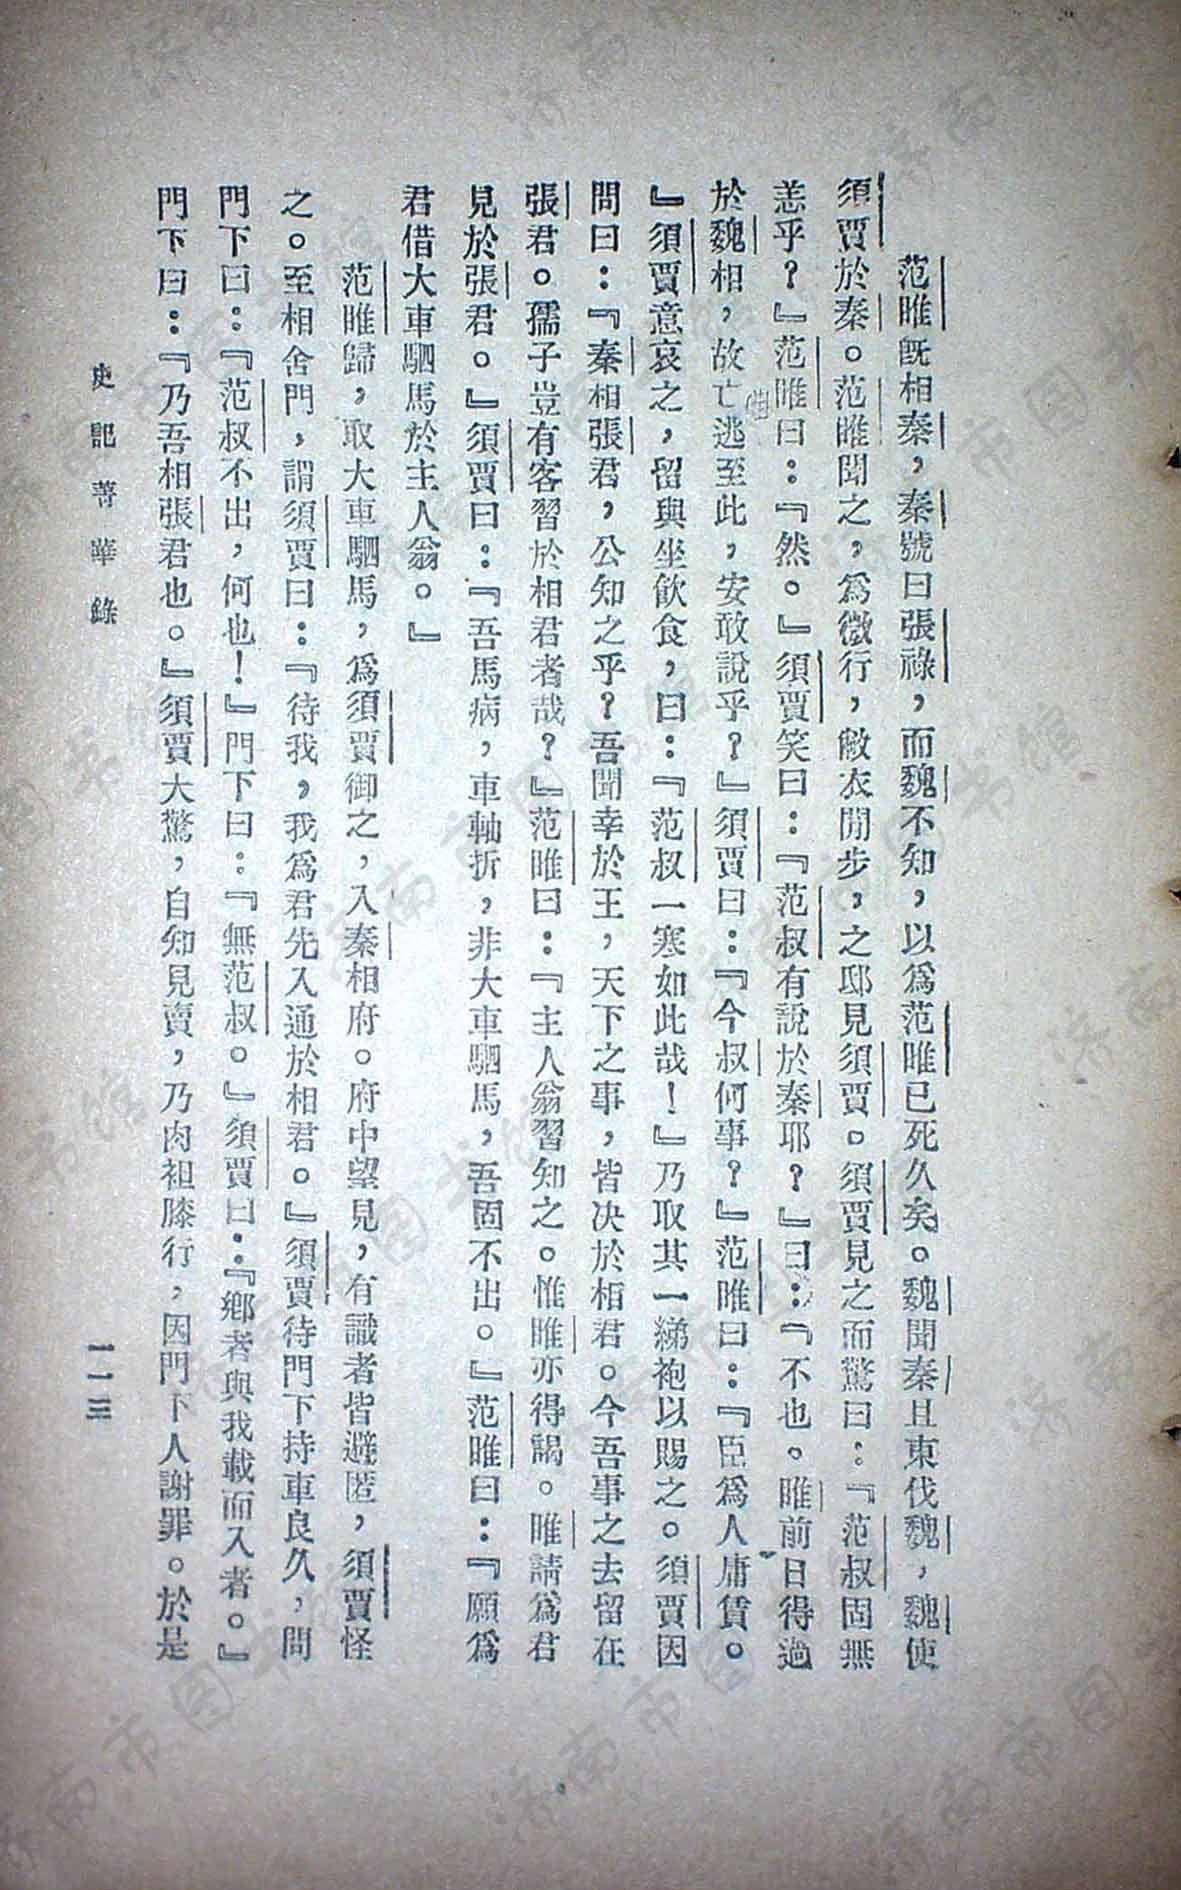 范睢旣相秦，秦號曰張祿，而魏不知，以爲范睢已死久矣。魏聞秦且東伐魏，魏使
須賈於秦。范睢聞之，爲微行，敝衣閒步，之邸見須賈。須賈見之而驚曰：『范叔固無
恙乎？』范睢曰：『然。』須賈笑曰：『范叔有說於秦耶？』曰：『不也。睢前日得過
於魏相，故亡逃至此，安敢說乎？』須賈曰：『今叔何事？』范睢曰：『臣爲人庸賃。
』須賈意哀之，留與坐飮食，曰：『范叔一寒如此哉！』乃取其一綈袍以賜之。須賈因
問曰：『秦相張君，公知之乎？吾聞幸於王，天下之事，皆决於相君。今吾事之去留在
張君。孺子豈有客習於相君者哉？』范睢曰：『主人翁習知之。惟睢亦得謁。睢請爲君
見於張君。』須賈曰：『吾馬病，車軸折，非大車駟馬，吾固不出。』范睢曰：『願爲
君借大車駟馬於主人翁。』
范睢歸，取大車駟馬，爲須賈御之，入秦相府。府中望見，有識者皆避匿，須賈怪
之。至相舍門，謂須賈曰：『待我，我爲君先入通於相君。』須賈待門下持車良久，問
門下曰：『范叔不出，何也！』門下曰：『無范叔。』須賈曰：『鄕者與我載而入者。』
門下曰：『乃吾相張君也。』須賈大驚，自知見賣，乃肉袒膝行，因門下人謝罪。於是
史記菁華錄
一一三
济南市图书馆